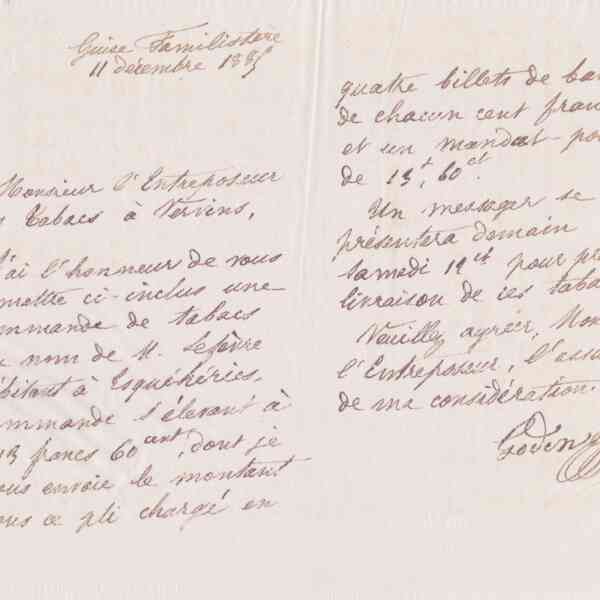 Guise Familistère
11 décembre 1885
Monsieur l'Entreposeur
Tabacs à Vervins,
J'ai l'honneur de vous
mettre ci-inclus une
ommande de tabacs
nom de M. Lefèvre
ébitant à Esquéhéries.
ommande s'élevant à
13 francs 60 cent, dont je
ous envoie le montant
ous ce pli chargé en
quatre billets de ban
de chacun cent fran
et un mandat po
de 13f, 60ct.
Un messager se
présentera demain
Samedi 12 ct pour pre
livraison de ces taba
Veuillez agréer, Mon
l'Entreposeur, l'assu
de ma considération.
Godin